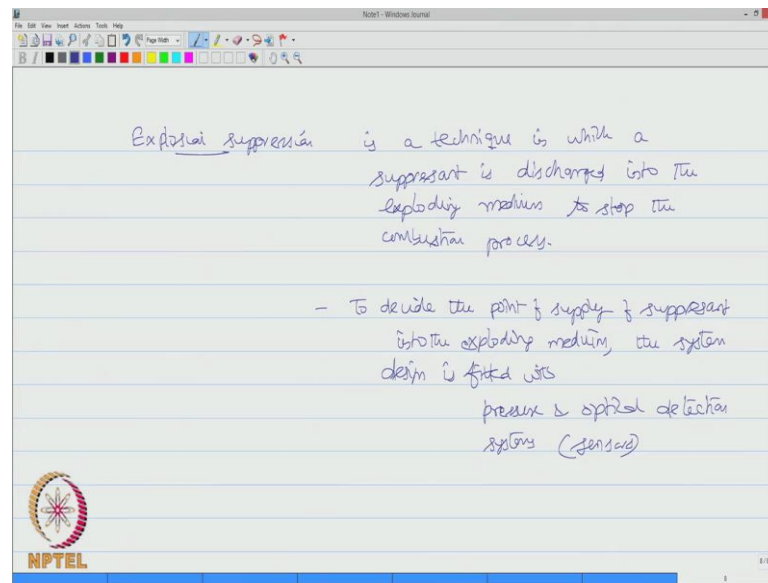 Note1 - Windows Journal
File Edit View Insert Actions Tools Help
Page Width
B I
Explosion suppression is a technique in which a
suppressant is discharged into the
exploding medium to stop the
combustion process.
- To decide the point of supply of suppressant
into the exploding medium, the system
design is fitted with
pressure & optical detection
systems (sensors)
NPTEL